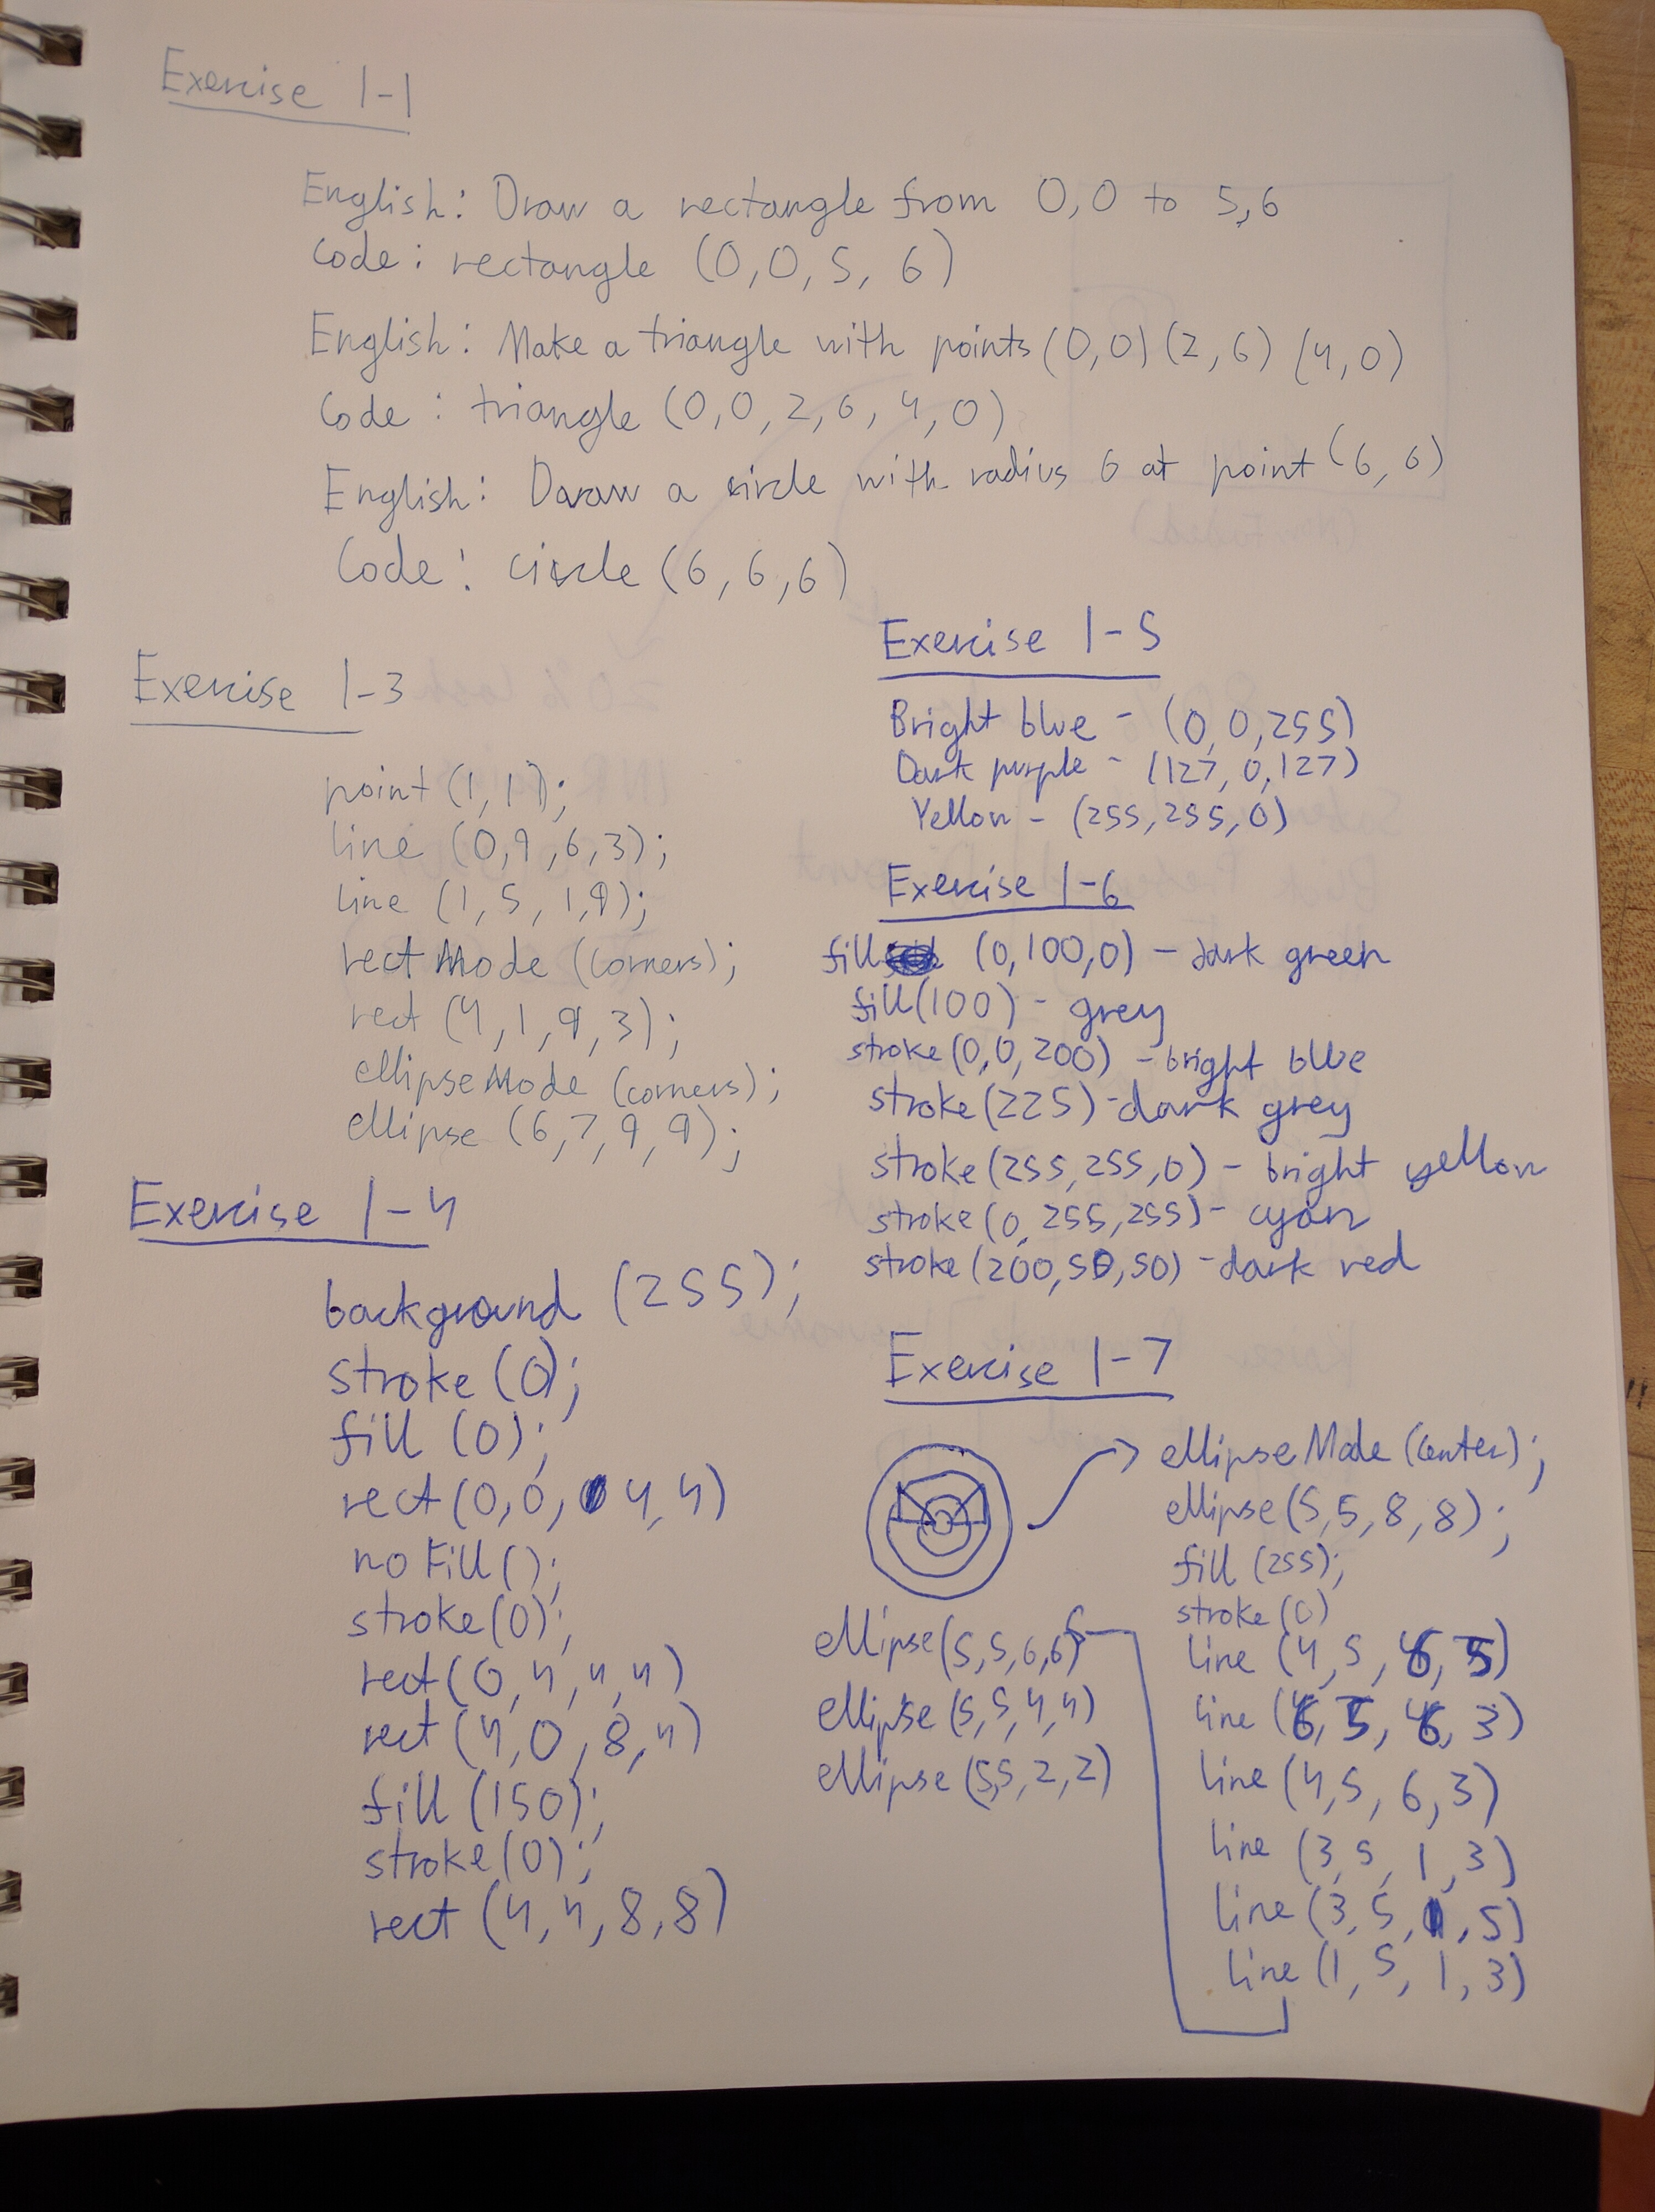 Exercise 1-1
English: Draw a rectangle from 0,0 to 5,6
Code: rectangle (0,0,5,6)
English: Make a triangle with points (0,0) (2,6) (4,0)
Code: triangle (0,0,2,6,4,0)
English: Daraw a circle with radius 6 at point (6,6)
Code: circle (6,6,6)
Exercise 1-3
point (1,1);
line (0,9,6,3);
line (1,5,1,9);
rectMode (corners);
rect (4,1,9,3);
ellipseMode (corners);
ellipse (6,7,9,9);
Exercise 1-4
background (255);
stroke (0);
fill (0);
rect (0,0,4,4)
noFill();
stroke(0);
rect (0,4,4,4)
rect (4,0,8,4)
fill (150);
stroke (0);
rect (4,4,8,8)
Exercise 1-5
Bright blue - (0,0,255)
Dark purple - (127,0,127)
Yellow - (255,255,0)
Exercise 1-6
fill (0,100,0) - dark green
fill(100) - grey
stroke (0,0,200) - bright blue
stroke (225) - dark grey
stroke (255,255,0) - bright yellow
stroke (0,255,255) - cyan
stroke (200,50,50) - dark red
Exercise 1-7
ellipseMode (center);
ellipse (5,5,8,8);
fill (255);
stroke (0)
line (4,5,6,5)
line (6,5,6,3)
line (4,5,6,3)
line (3,5,1,3)
line (3,5,1,5)
line (1,5,1,3)
ellipse (5,5,6,6)
ellipse (5,5,4,4)
ellipse (5,5,2,2)